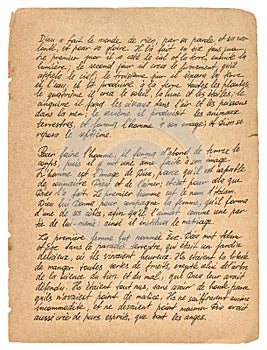 Dieu a fait le monde de rien par sa parole et sa vo-
lonté, et pour sa gloire. Il l'a fait en six jours.
Le premier jour il a créé le ciel et la terre, ensuite la
lumière; le second jour il créa le firmament, qu'il
appela le ciel; le troisième jour il sépara la terre
et l'eau, et fit produire à la terre toutes les plantes;
le quatrième, il créa le soleil, la lune et les étoiles; le
cinquième il fond les oiseaux dans l'air et les poissons
dans la mer; le sixième il produisit les animaux
terrestres, et forma l'homme à son image; et Dieu se
reposa le septième.
Pour faire l'homme, il forma d'abord de terre le
corps, puis il y mit une âme faite à son image.
L'homme est l'image de Dieu, parce qu'il est capable
de connaître Dieu et de l'aimer; et c'est pour cela que
Dieu l'a fait. Le premier homme fut nommé Adam.
Dieu lui donna pour compagne la femme, qu'il forma
d'une de ses côtes, afin qu'il l'aimât comme une par-
tie de lui-même: ainsi il institua le mariage.
La première femme fut nommée Ève. Dieu mit Adam
et Ève dans le paradis terrestre, qui était un jardin
délicieux, où ils vivaient heureux. Ils étaient la liberté
de manger toutes sortes de fruits, excepté celui de l'arbre
de la science du bien et du mal, que Dieu leur avait
défendu. Ils étaient tout nus, sans avoir de honte parce
qu'ils n'avaient point de malice. Ils ne souffraient aucune
incommodité, et ne devaient point mourir. Dieu avait
aussi créé de purs esprits, que sont les anges.